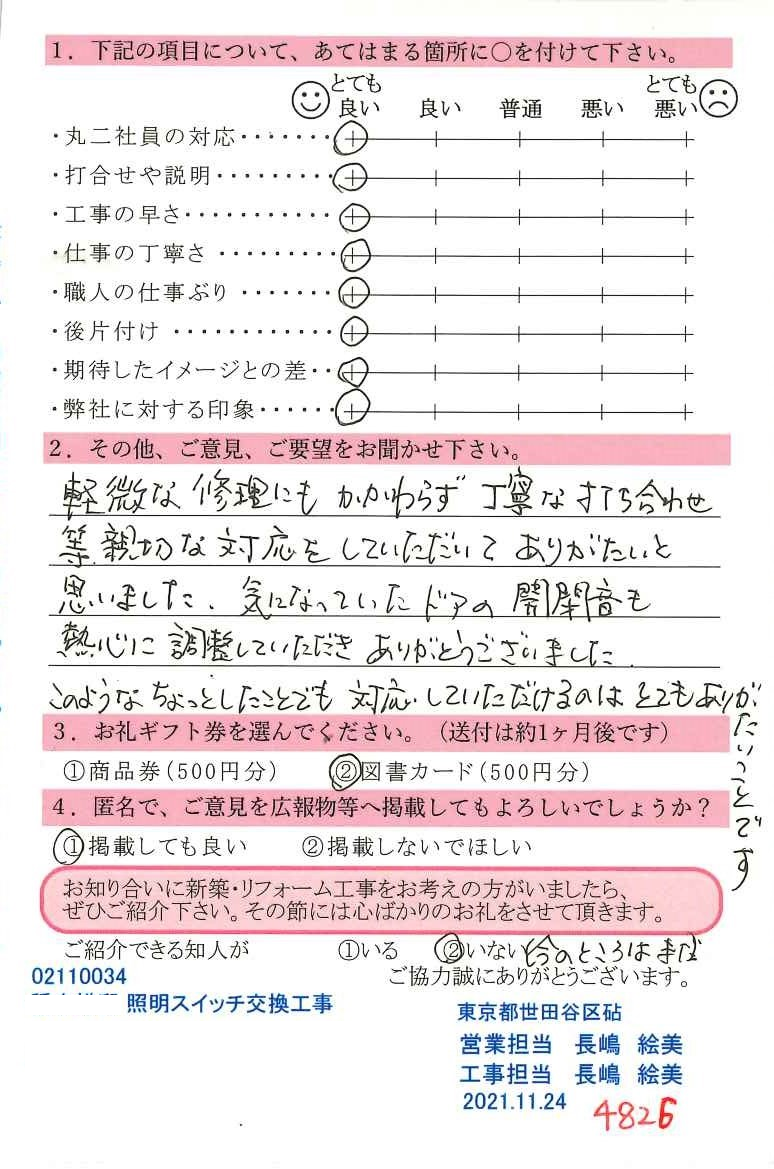 1．下記の項目について、あてはまる箇所に○を付けて下さい。
とても良い 良い 普通 悪い とても悪い
・丸二社員の対応・・・・・・・
・打合せや説明・・・・・・・・・
・工事の早さ・・・・・・・・・・・
・仕事の丁寧さ・・・・・・・・・
・職人の仕事ぶり・・・・・・・
・後片付け・・・・・・・・・・・・
・期待したイメージとの差・・
・弊社に対する印象・・・・・・
2．その他、ご意見、ご要望をお聞かせ下さい。
軽微な修理にもかかわらず丁寧な打ち合わせ
等、親切な対応をしていただいてありがたいと
思いました。気になっていたドアの開閉音も
熱心に調整していただきありがとうございました。
このようなちょっとしたことでも対応していただけるのはとてもありが
たいことです
3．お礼ギフト券を選んでください。（送付は約1ヶ月後です）
①商品券（500円分） ②図書カード（500円分）
4．匿名で、ご意見を広報物等へ掲載してもよろしいでしょうか？
①掲載しても良い ②掲載しないでほしい
お知り合いに新築・リフォーム工事をお考えの方がいましたら、
ぜひご紹介下さい。その節には心ばかりのお礼をさせて頂きます。
ご紹介できる知人が ①いる ②いない 今のところはまだ
ご協力誠にありがとうございます。
02110034
照明スイッチ交換工事
東京都世田谷区砧
営業担当 長嶋 絵美
工事担当 長嶋 絵美
2021.11.24
4826